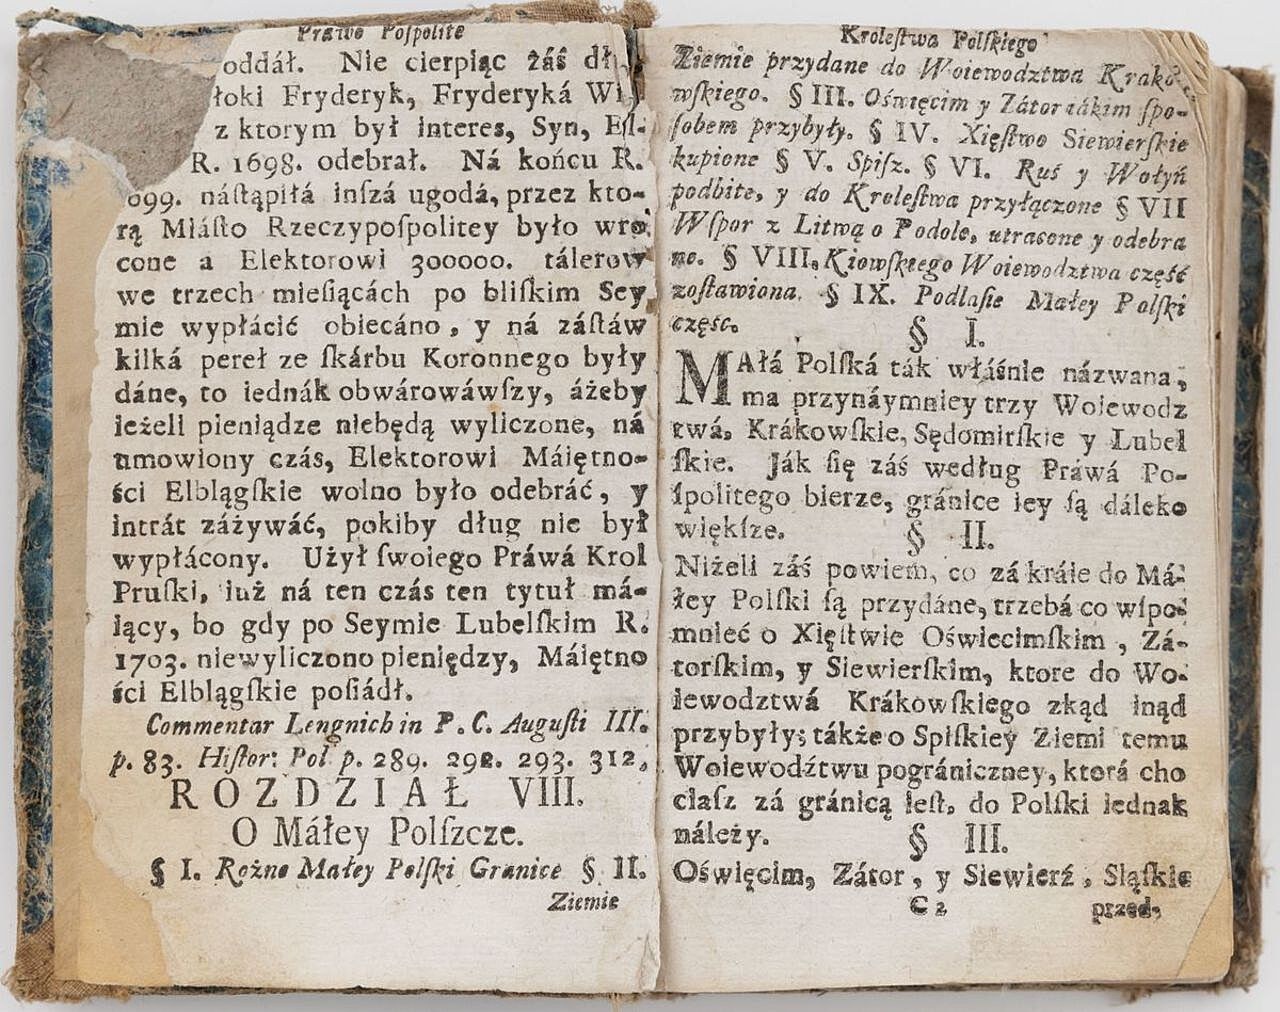 Prawo Poſpolite
oddáł. Nie cierpiąc záś
łoki Fryderyk, Fryderyká
z ktorym był interes, Syn,
R. 1698. odebrał. Ná końcu R.
699. náſtąpiłá inſzá ugodá, przez kto-
rą Miáſto Rzeczypoſpolitey było wro
cone a Elektorowi 300000. tálerow
we trzech mieſiącách po bliſkim Sey
mie wypłácić obiecáno, y ná záſtáw
kilká pereł ze ſkárbu Koronnego były
dáne, to iednák obwárowáwſzy, áżeby
ieżeli pieniądze niebędą wyliczone, ná
umowiony czás, Elektorowi Máiętno-
ści Elblągſkie wolno było odebráć, y
intrát záżywáć, pokiby dług nie był
wypłácony. Użył ſwoiego Práwá Krol
Pruſki, iuż ná ten czás ten tytuł má-
iący, bo gdy po Seymie Lubelſkim R.
1703. niewyliczono pieniędzy, Máiętno
ści Elblągſkie poſiádł.
Commentar Lengnich in P. C. Auguſti III.
p. 83. Hiſtor: Pol p. 289. 292. 293. 312.
ROZDZIAŁ VIII.
O Máłey Polſzcze.
§ I. Rożne Małey Polſki Granice § II.
Ziemie
Kroleſtwa Polſkiego
Ziemie przydane do Woiewodztwa Krako-
wſkiego. § III. Oświęcim y Zátor iákim ſpo-
ſobem przybyły. § IV. Xięſtwo Siewierſkie
kupione § V. Spiſz. § VI. Ruś y Wołyń
podbite, y do Kroleſtwa przyłączone § VII
Wſpor z Litwą o Podole, utracone y odebra
ne. § VIII. Kiowſkiego Woiewodztwa część
zoſtawiona. § IX. Podlaſie Małey Polſki
częśc.
§ I.
MAłá Polſká ták właśnie názwana,
ma przynáymniey trzy Woiewodz
twá, Krákowſkie, Sędomirſkie y Lubel
ſkie. Ják ſię záś według Práwá Po-
ſpolitego bierze, gránice iey ſą dáleko
więkſze.
§ II.
Niżeli záś powiem, co zá kráie do Má-
łey Polſki ſą przydáne, trzebá co wſpo-
mnieć o Xięſtwie Oświecimſkim, Zá-
torſkim, y Siewierſkim, ktore do Wo-
iewodztwá Krákowſkiego zkąd inąd
przybyły; tákże o Spiſkiey Ziemi temu
Woiewodźtwu pográniczney, ktorá cho
ciaſz zá gránicą ieſt, do Polſki iednak
náleży.
§ III.
Oświęcim, Zátor, y Siewierź, Sląſkie
C 2
przed,